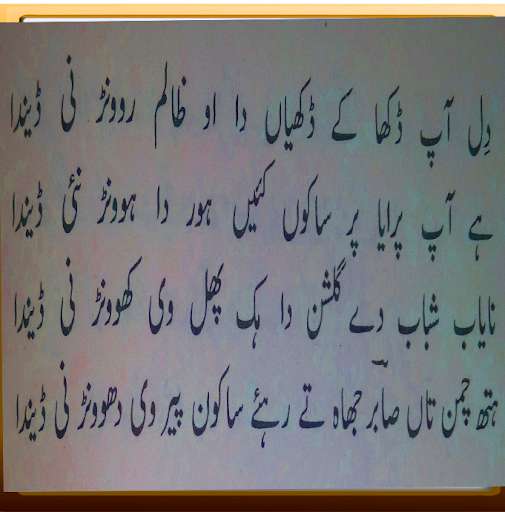 دِل آپ ڈکھا کے ڈکھیاں دا او ظالم روونڑ نی ڈیندا
ہے آپ پرایا پر ساکوں کئیں ہور دا ہوونڑ نئی ڈیندا
نایاب شباب دے گلشن دا ہک پھل وی کھوونڑ نی ڈیندا
ہتھ چمن تاں صابر جھاہ تے رہئے ساکون پیر وی دھوونڑ نی ڈیندا